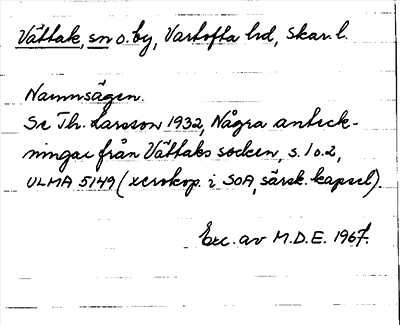 Vättak, sn o. by, Vartofta hd, Skar. l.
Namnsägen.
Se Th. Larsson 1932, Några anteck-
ningar från Vättaks socken, s. 1 o. 2,
ULMA 5149 (xerokop. i SOA, särsk. kapsel).
Exc. av M.D.E. 1967.